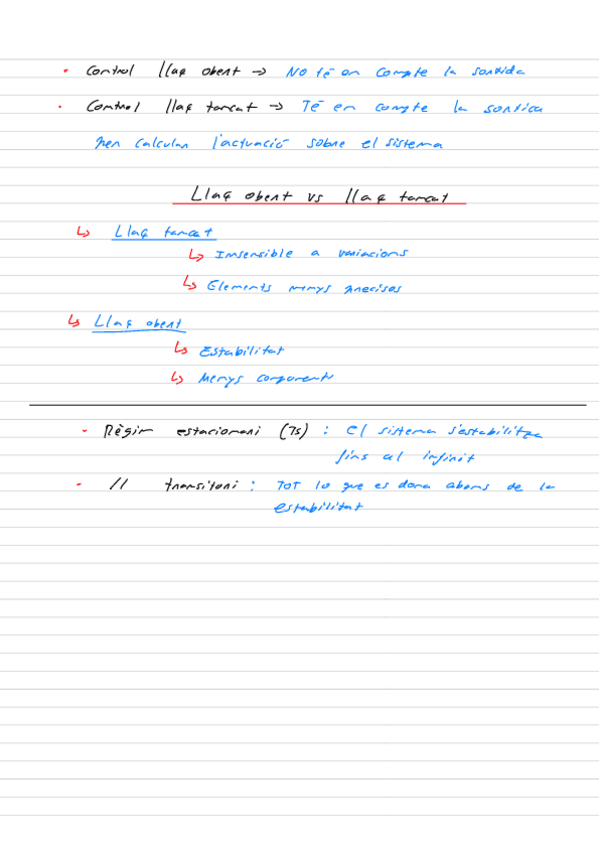 · Control llaç obert → No té en compte la sortida
· Control llaç tancat → Té en compte la sortida
per calcular l'actuació sobre el sistema
Llaç obert vs llaç tancat
↳ Llaç tancat
↳ Insensible a variacions
↳ Elements menys precisos
↳ Llaç obert
↳ Estabilitat
↳ Menys components
- Règim estacionari (Ts) : el sistema s'estabilitza
fins al infinit
- // transitori : Tot lo que es dona abans de la
estabilitat